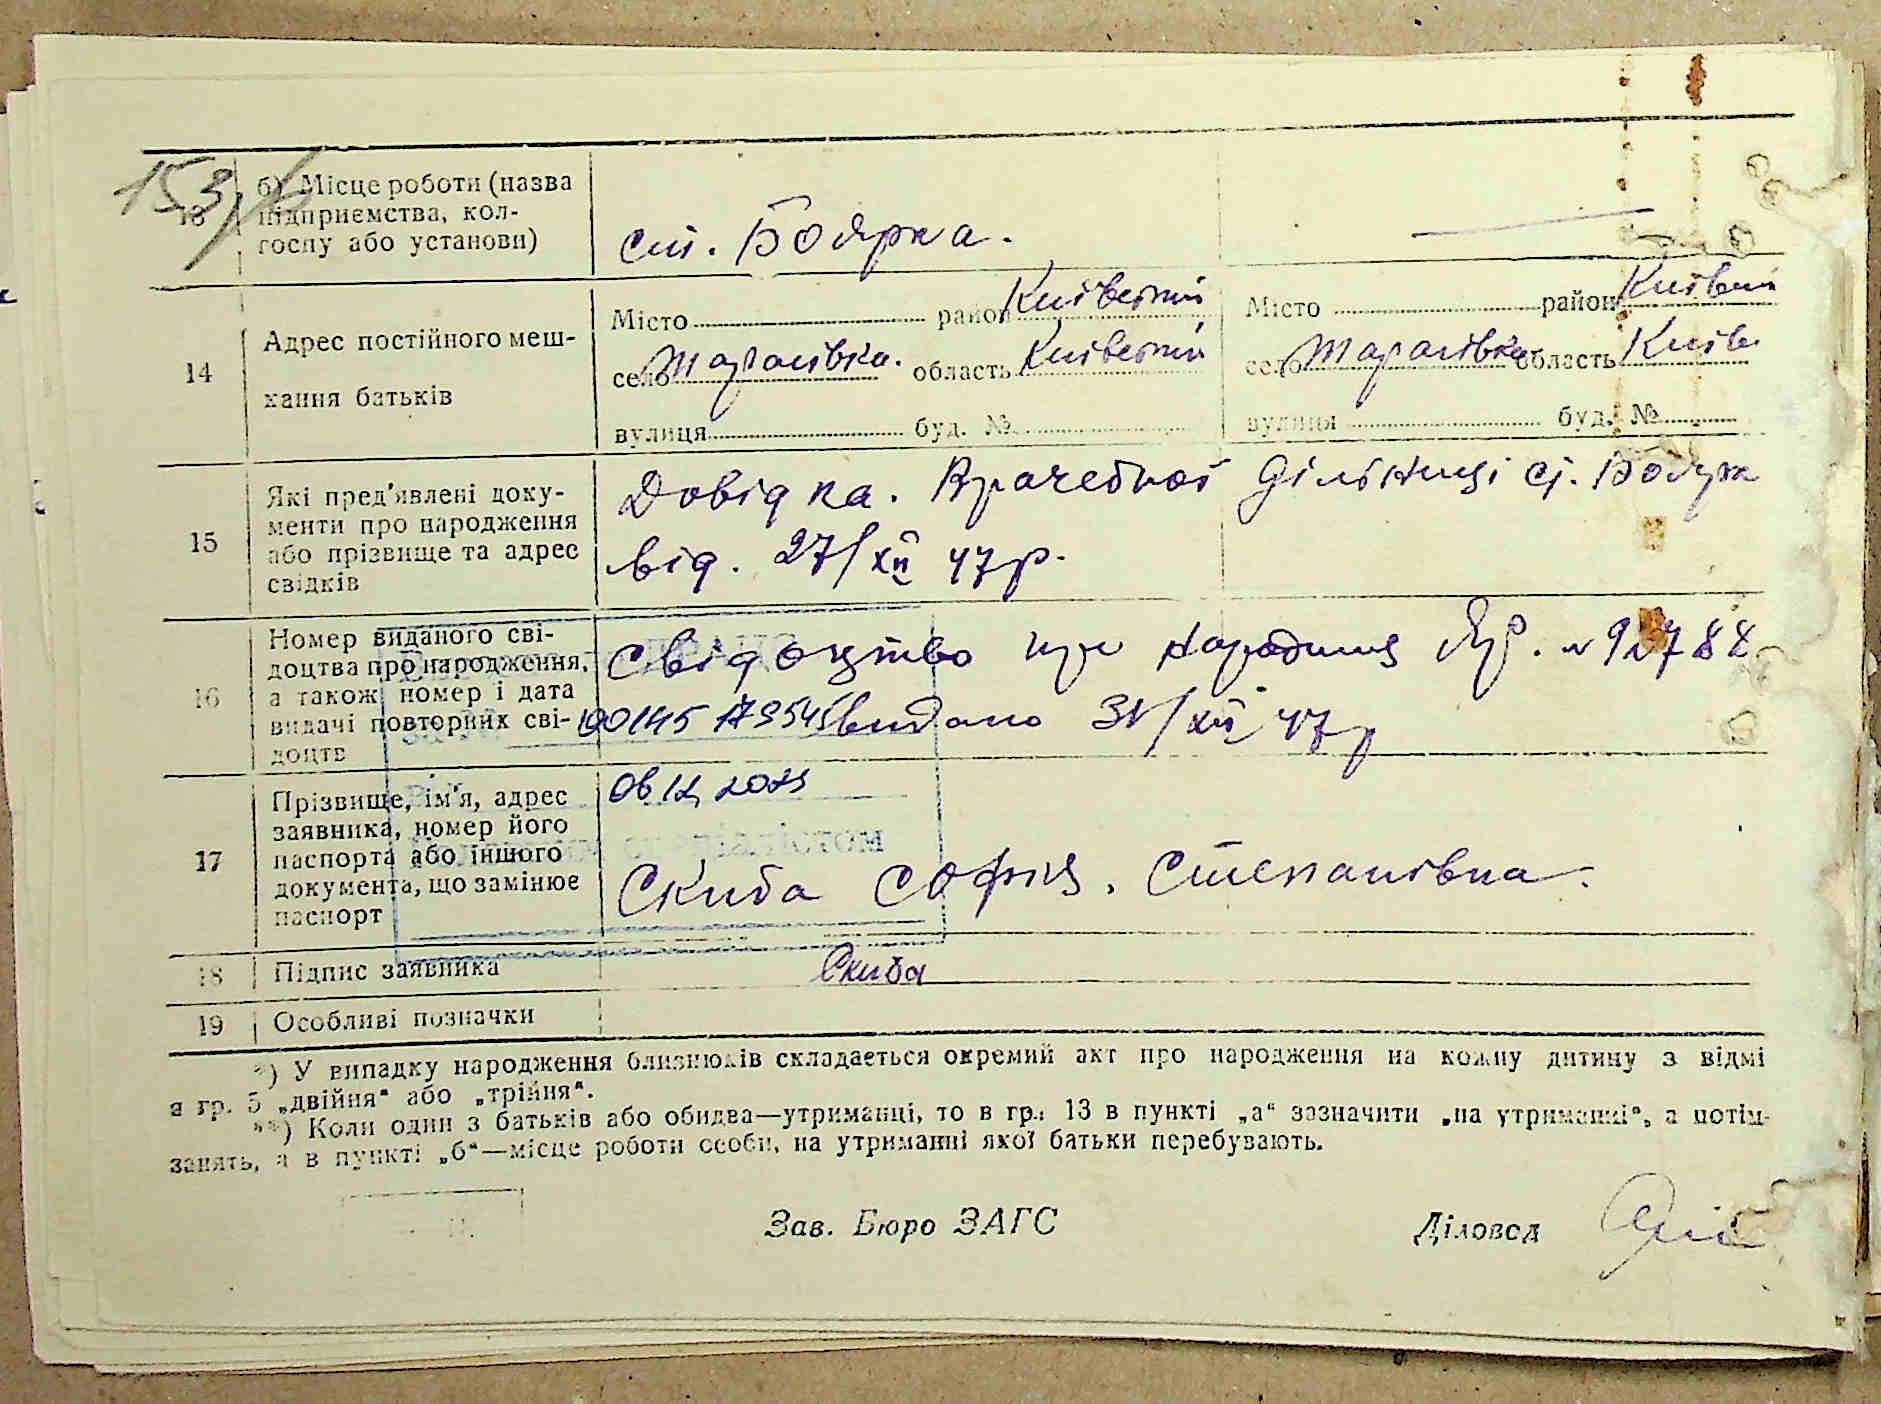 153
13 б) Місце роботи (назва
підприємства, кол-
госпу або установи)
ст. Боярка.
14 Адрес постійного меш-
кання батьків
Місто район Київський
село Тарасівка. область Київський
вулиця буд. №
Місто район Київськ
село Тарасівка область Київ
вулиця буд. №
15 Які пред'явлені доку-
менти про народження
або прізвище та адрес
свідків
Довідка. Врачебної Дільниці ст. Боярк
від. 27/XII 47р.
16 Номер виданого сві-
доцтва про народження,
а також номер і дата
видачі повторних сві-
доцтв
Свідоцтво про народження № 92788
00145179545 видано 31/XII 47р
17 Прізвище, ім'я, адрес
заявника, номер його
паспорта або іншого
документа, що замінює
паспорт
Скиба Софія. Степанівна.
18 Підпис заявника
Скиба
19 Особливі позначки
*) У випадку народження близнюків складається окремий акт про народження на кожну дитину з відмі
в гр. 5 „двійня" або „трійня".
**) Коли один з батьків або обидва—утриманці, то в гр. 13 в пункті „а" зазначити „на утриманні", а потім
занять, а в пункті „б"—місце роботи особи, на утриманні якої батьки перебувають.
Зав. Бюро ЗАГС
Діловод